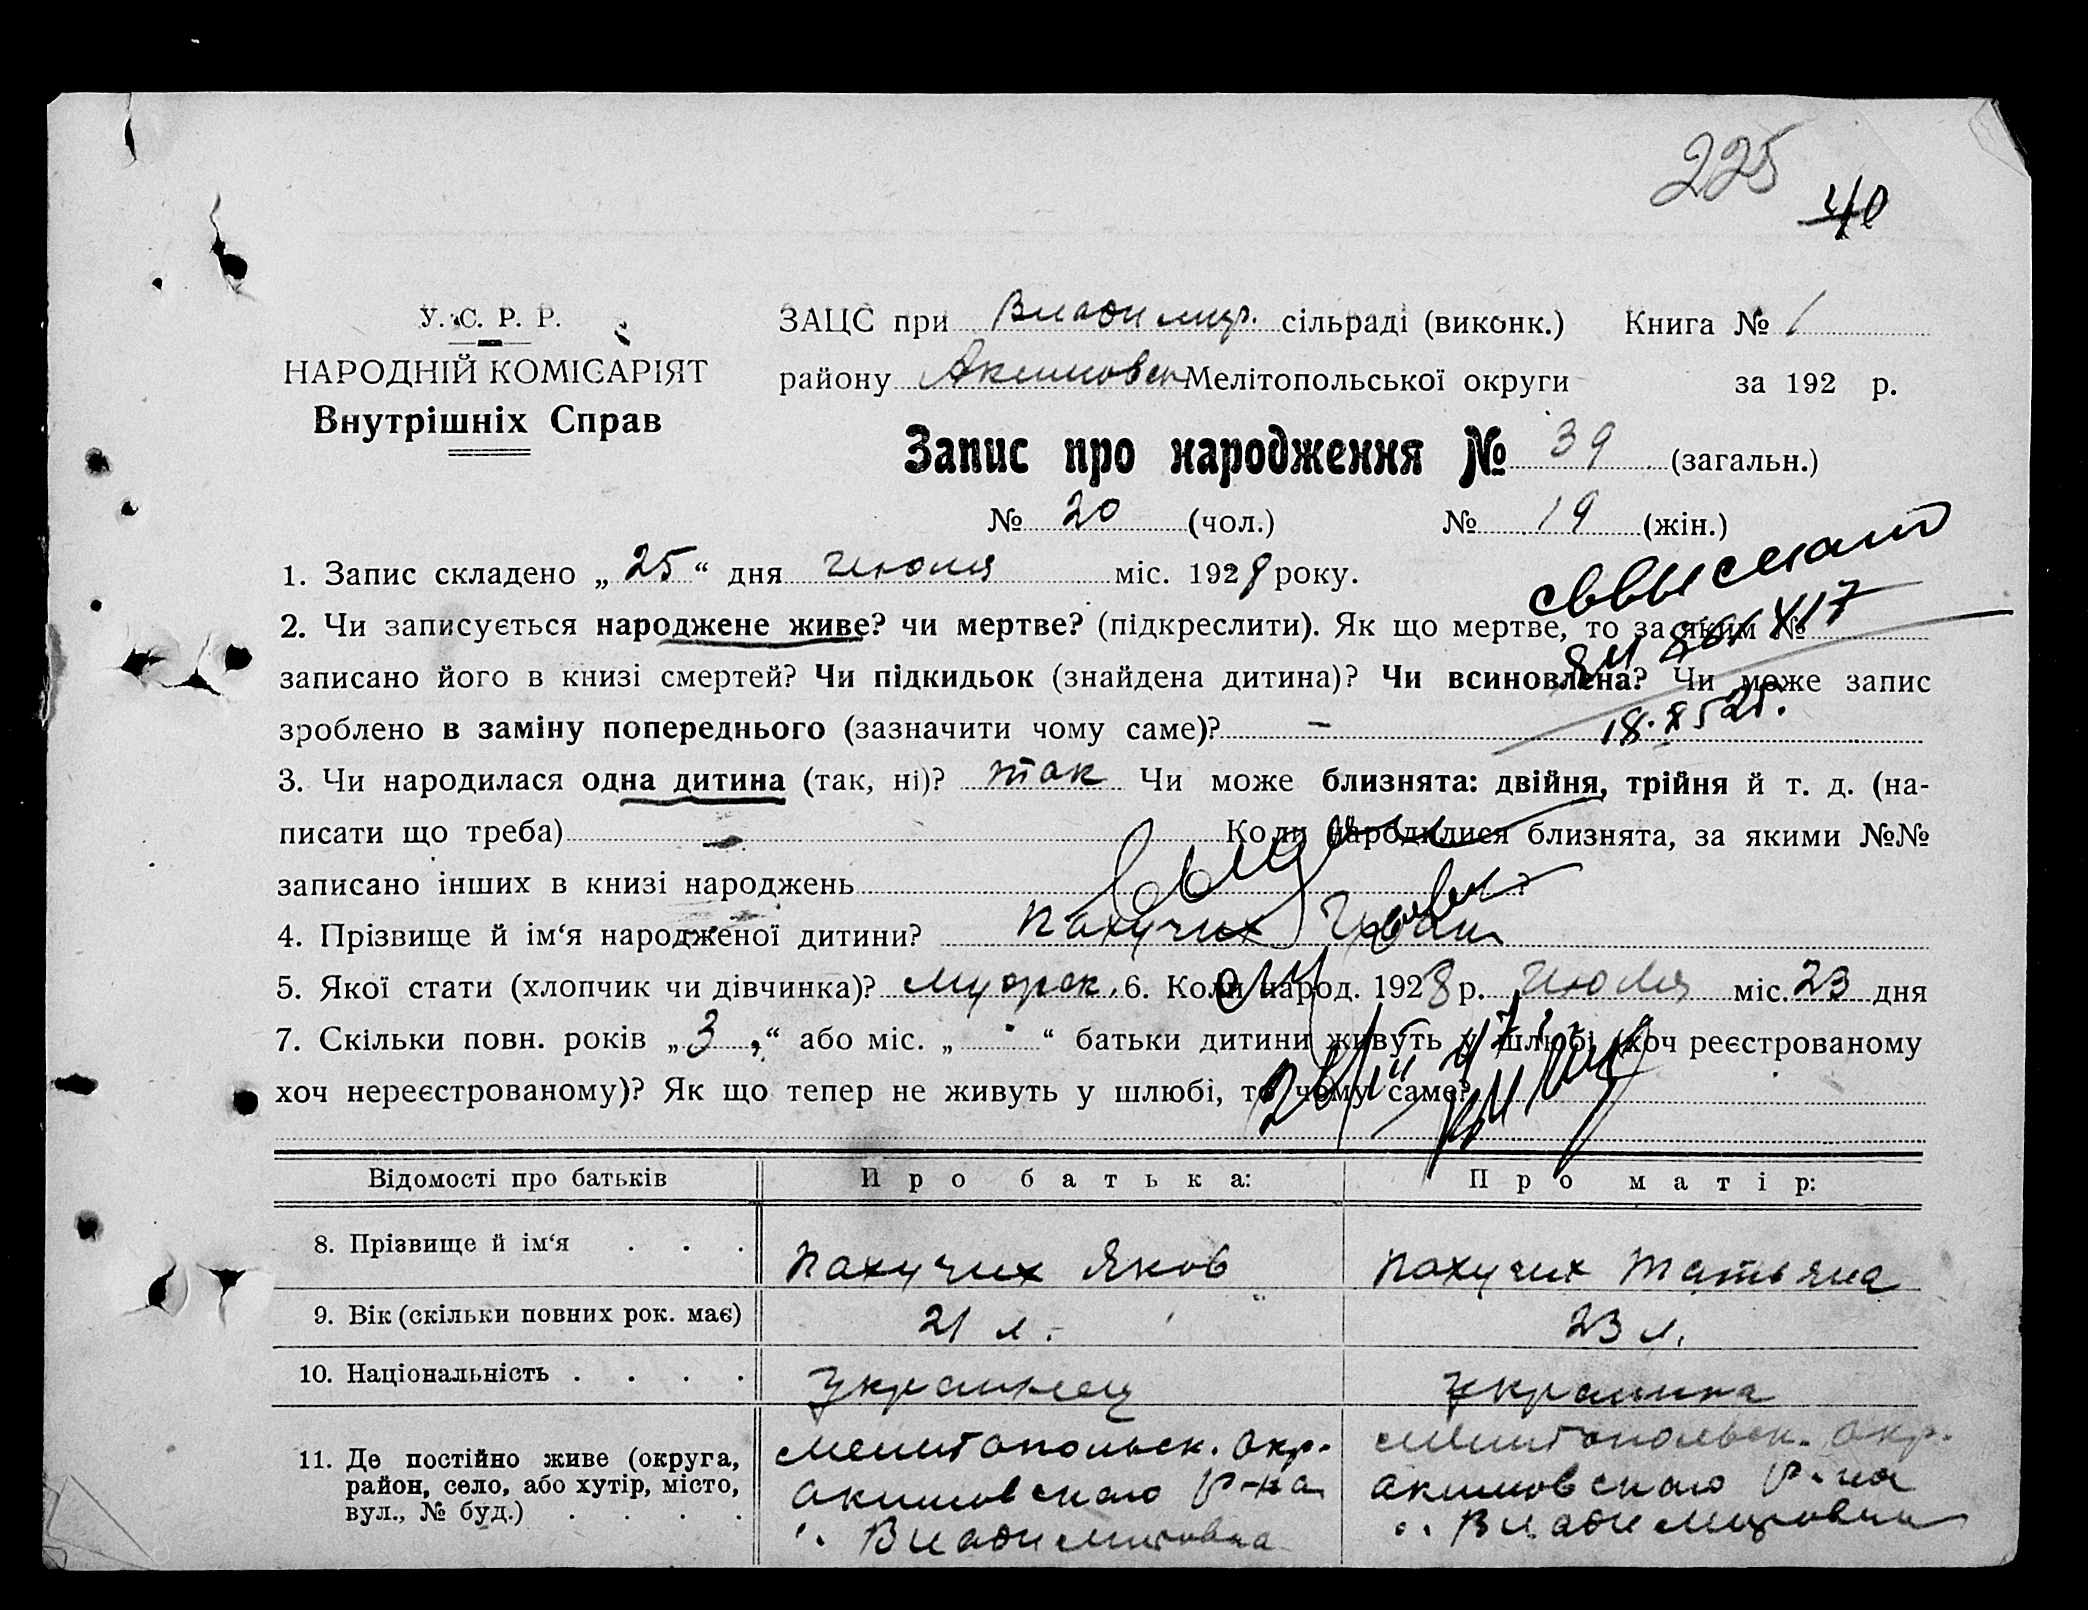 225
40
У. С. Р. Р.
НАРОДНІЙ КОМІСАРІЯТ
Внутрішніх Справ
ЗАЦС при Владимир. сільраді (виконк.) Книга № 1
району Акимовск Мелітопольської округи за 192 р.
Запис про народження № 39 (загальн.)
№ 20 (чол.) № 19 (жін.)
1. Запис складено „25“ дня июля міс. 1928 року.
2. Чи записується народжене живе? чи мертве? (підкреслити). Як що мертве, то за яким №
записано його в книзі смертей? Чи підкидьок (знайдена дитина)? Чи всиновлена? Чи може запис
зроблено в заміну попереднього (зазначити чому саме)? –
3. Чи народилася одна дитина (так, ні)? так Чи може близнята: двійня, трійня й т. д. (на-
писати що треба) Коли народилися близнята, за якими №№
записано інших в книзі народжень ?
4. Прізвище й ім‘я народженої дитини? Пахучих Иван
5. Якої стати (хлопчик чи дівчинка)? мужск. 6. Коли народ. 1928 р. Июля міс. 23 дня
7. Скільки повн. років „3“ або міс. „ “ батьки дитини живуть у шлюбі (хоч реєстрованому
хоч нереєстрованому)? Як що тепер не живуть у шлюбі, то чому саме?
Відомості про батьків Про батька: Про матір:
8. Прізвище й ім‘я . . . Пахучих Яков Пахучих Татьяна
9. Вік (скільки повних рок. має) 21 л. 23 л.
10. Національність . . . . Украинец Украинка
11. Де постійно живе (округа, Мелитопольск. окр. Мелитопольск. окр.
район, село, або хутір, місто, Акимовскаго р-на Акимовскаго р-на
вул., № буд.) . . . . Владимировка Владимировка